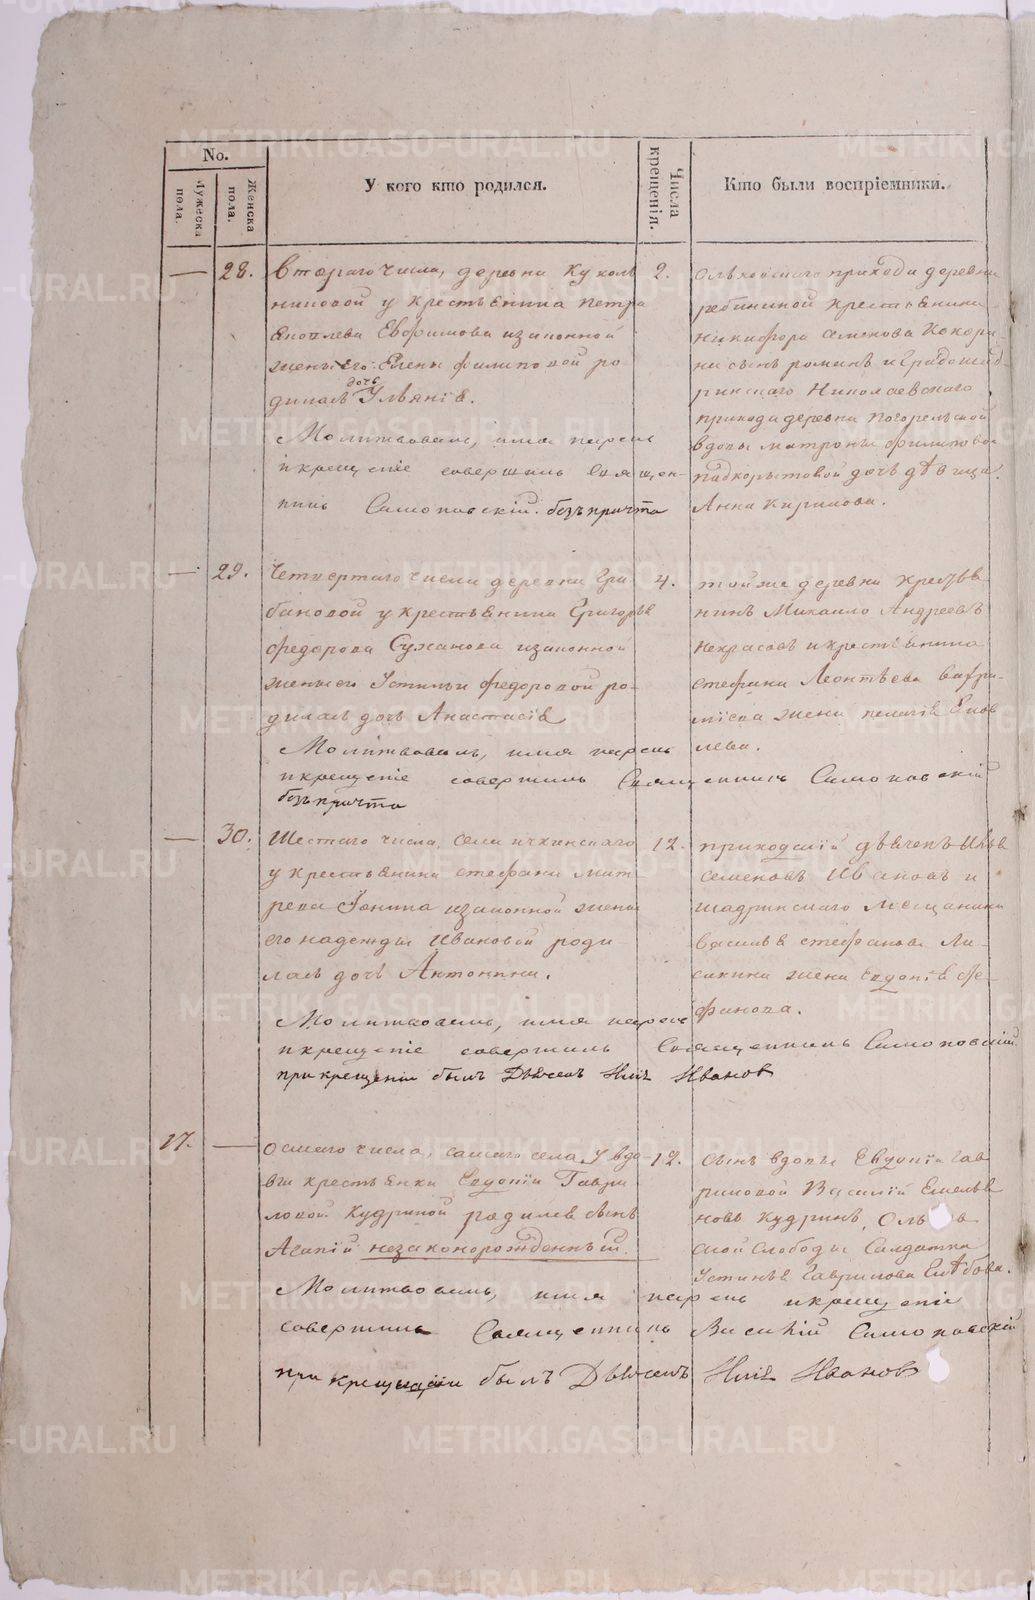 No.
Мужеска пола.
Женска пола.
У кого кто родился.
Числа крещенiя.
Кто были воспрiемники.
28.
Втораго числа, деревни Куколь
никовой у крестьянина Петра
Яковлева Евфимова изаконной
жены его Елены Филиповой ро-
дилась дочь Ульянiя.
Молитвовалъ, имя нарекъ
икрещенiе совершилъ Священ-
никъ Симоновскiй безъ причта
2.
прихода деревни
крестьянина
Никифора Семенова Кокори
на сынъ романъ и Градошад
ринскаго Николаевскаго
прихода деревни Погорельской
вдовы матроны филиповой
падкорытовой дочь девица
Анна Кирилова.
29.
Четвертаго числа деревни Гри
бановой у крестьянина Григорья
Федорова Суханова изаконной
жены его Устиньи Федоровой ро-
дилась дочь Анастасiя
Молитвовалъ, имя нарекъ
икрещенiе совершилъ Священникъ Симоновскiй
безъ причта
4.
тойже деревни крестья
нинъ Михайло Андреевъ
Некрасовъ икрестьянина
стефана Леонтьева
жена пелагiя Яков
лева.
30.
Шестаго числа, села ичкинскаго
у крестьянина стефана Мит
рева Iонина изаконной жены
его надежды Ивановой роди
лась дочь Антонина.
Молитвовалъ, имя нарекъ
икрещенiе совершилъ Священникъ Симоновскiй
при крещенiи былъ Дьячекъ Илiя Ивановъ
12.
приходскiй дьячекъ Илья
семеновъ Ивановъ и
шадринскаго мещанина
василья стефанова Ли-
сихина жена Евдокiя
17.
Осмаго числа, самаго села у вдо-
вы крестьянки Евдокiи Гаври
ловой Кудриной родился сынъ
незаконорожденный.
Молитвовалъ, имя нарекъ икрещенiе
совершилъ Священникъ Василiй Симоновскiй
при крещенiи былъ Дьячекъ Илiя Ивановъ
12.
сынъ вдовы Евдокiи Гав
риловой Василiй Емелья
новъ Кудринъ,
ской слободы Салдатка
Устинья Гаврилова